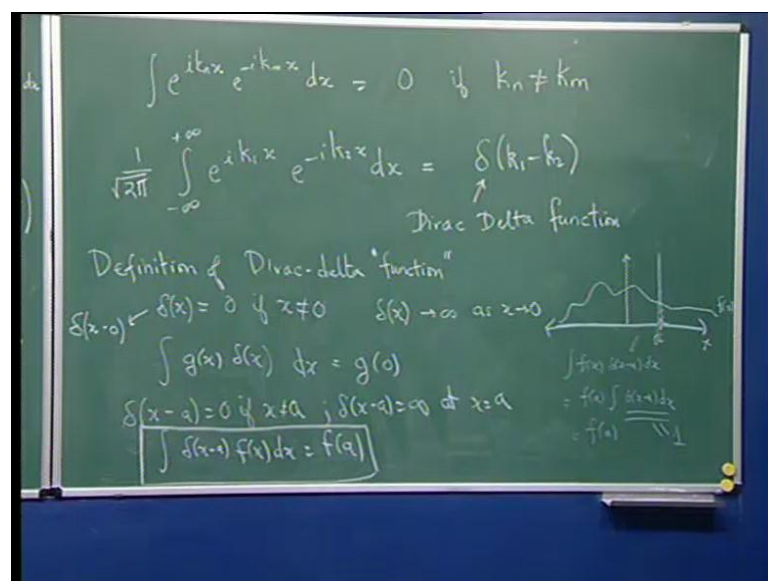 dx
∫ e^{ik_n x} e^{-ik_m x} dx = 0 if k_n ≠ k_m
1/√2π ∫_{-∞}^{+∞} e^{ik_1 x} e^{-ik_2 x} dx = δ(k_1-k_2)
Dirac Delta function
Definition of Dirac-delta "function"
δ(x-0) ← δ(x) = 0 if x≠0 δ(x) → ∞ as x→0
∫ g(x) δ(x) dx = g(0)
δ(x-a)=0 if x≠a ; δ(x-a)=∞ at x=a
∫ δ(x-a) f(x) dx = f(a)
f(x)
a
x
∫ f(x) δ(x-a) dx
= f(a) ∫ δ(x-a) dx
= f(a)
1